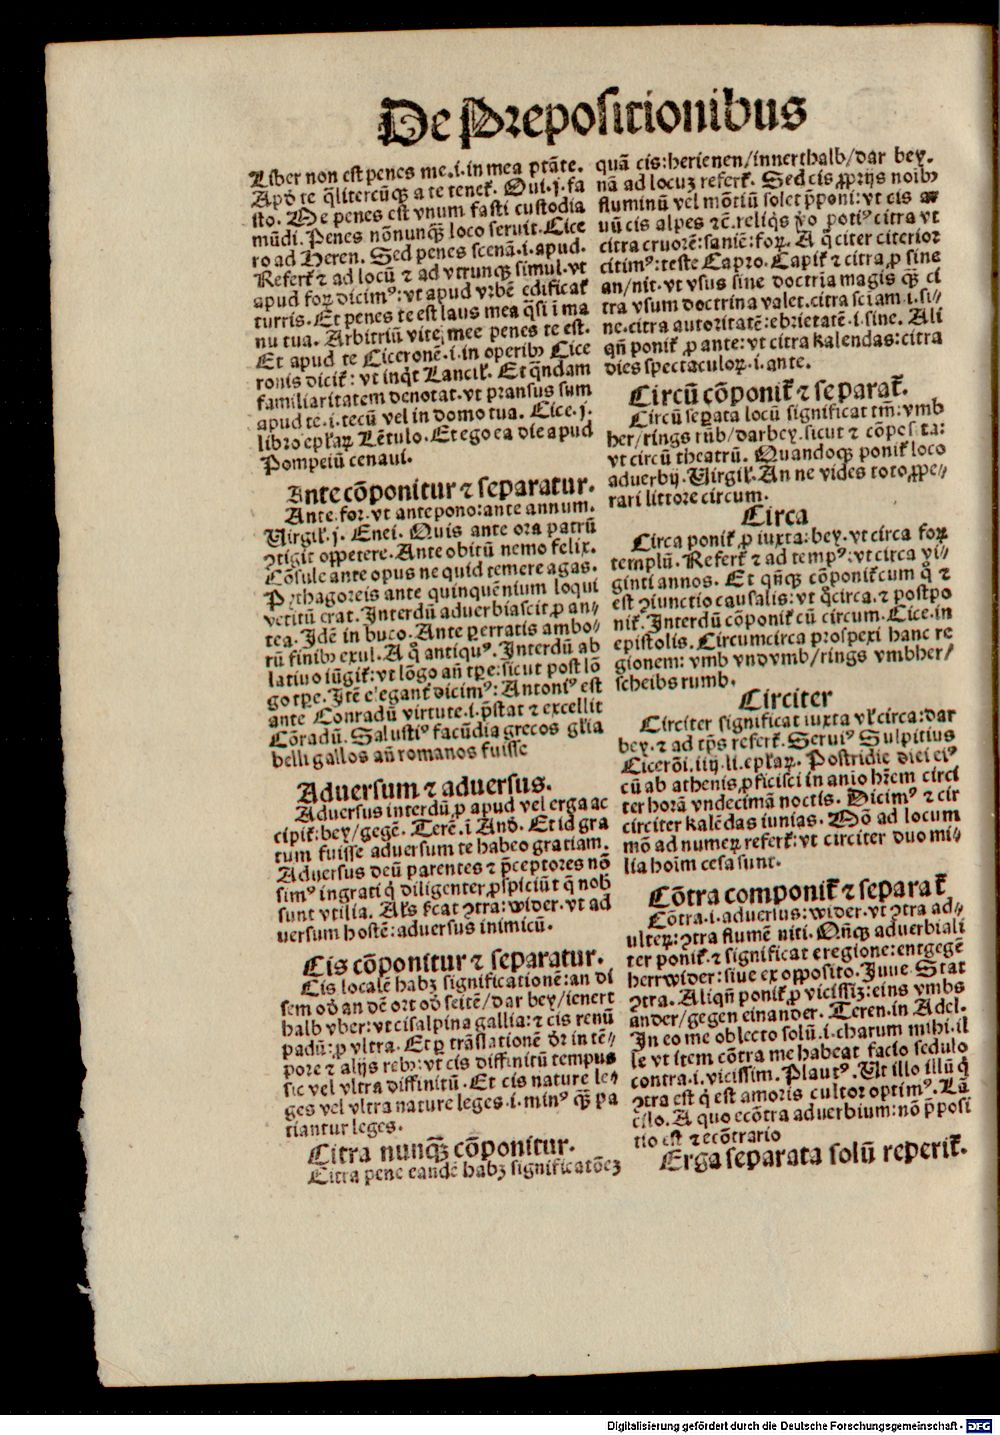 De Prepositionibus
Liber non est penes me .i. in mea ptāte.
Apđ te q̄litercūq̨ a te teneť. Oui .j. fa
sto. De penes est vnum fasti custodia
mūdi. Penes nōnunq̨̄ loco seruit. Cice
ro ad Heren. Sed penes scenā .i. apud.
Referť ⁊ ad locū ⁊ ad vtrunq̨ simul. vt
apud foꝝ dicimꝰ: vt apud vrbē edificať
turris. Et penes te est laus mea q̄si ī ma
nu tua. Arbitriū vite mee penes te est.
Et apud te Ciceronē .i. in operibꝫ Cice
ronis diciť: vt inq̄t Lanciť. Et q̄ndam
familiaritatem denotat. vt pransus sum
apud te .i. tecū vel in domo tua. Cice. j.
libro epl'aꝝ Lētulo. Et ego ea die apud
Pompeiū cenaui.
Ante cōponitur ⁊ separatur.
Ante. for. vt antepono: ante annum.
Uirgil'. j. Enei. Quis ante ora patrū
ꝯtigit oppetere. Ante obitū nemo felix.
Cōsule ante opus ne quid temere agas.
Pythagoreis ante quinquēnium loqui
vetitū erat. Interdū aduerbiascit ꝓ an-
tea. Idē in buco. Ante ꝑerratis ambo-
rū finibꝫ exul. A q̊ antiquꝰ. Interdū ab
latiuo iūgiť: vt lōgo añ tꝑe: sicut post lō
go tꝑe. Itē eleganť dicimꝰ: Antoniꝰ est
ante Conradū virtute .i. p̄stat ⁊ excellit
Cōradū. Salustiꝰ facūdia grecos gl'ia
belli gallos añ romanos fuisse
Aduersum ⁊ aduersus.
Aduersus interdū ꝓ apud vel erga ac
cipiť: bey/gegē. Terē. ī Anđ. Et id gra
tum fuisse aduersum te habeo gratiam.
Aduersus deū parentes ⁊ p̄ceptores nō
simꝰ ingrati q̇ diligenter ꝓspiciūt q̄ nob̄
sunt vtilia. Al's ꝯtra: wider. vt ad
uersum hostē: aduersus inimicū.
Cis cōponitur ⁊ separatur.
Cis localē habꝫ significationē: an di
sem ođ an dē ort ođ seitē/dar bey/ienert
halb vber: vt cisalpina gallia: ⁊ cis renū
padū: ꝓ vltra. Et ꝑ trāslationē đr in tē-
pore ⁊ alijs rebꝫ: vt cis diffinitū tempus
sic vel vltra diffinitū. Et cis nature le-
ges vel vltra nature leges .i. minꝰ q̨̄ pa
tiantur leges.
Citra nunq̨̄ cōponitur.
Citra pene eandē habꝫ significatōeꝫ
quā cis: herienen/innerthalb/dar bey.
nā ad locuꝫ referť. Sed cis ꝓprijs noībꝫ
fluminū vel mōtiū solet p̄poni: vt cis ar
uū cis alpes ⁊c̄. reliq̄s ꝟo potiꝰ citra vt
citra cruorē: saniē: foꝝ. A q̊ citer citerior
citimꝰ: teste Capro. Capiť ⁊ citra ꝓ sine
an/nit. vt vsus sine doctrīa magis q̨̄ ci
tra vsum doctrina valet. citra sciam .i. si-
ne. citra autoritatē: ebrietatē .i. sine. Ali
qñ poniť ꝓ ante: vt citra kalendas: citra
dies spectaculoꝝ .i. ante.
Circū cōponiť ⁊ separať.
Circū seꝑata locū significat tm̄: vmb
her/rings rūb/darbey. sicut ⁊ cōpesita:
vt circū theatrū. Quandoq̨ poniť loco
aduerbij. Uirgil'. An ne vides toto ꝓpe-
rari littore circum.
Circa
Circa poniť ꝓ iuxta: bey. vt circa foꝝ
templū. Referť ⁊ ad tempꝰ: vt circa vi-
ginti annos. Et qñq̨ cōponiť cum q̊ ⁊
est ꝯiunctio causalis: vt q̊circa. ⁊ postpo
niť. Interdū cōponiť cū circum. Cice. in
epistolis. Circumcirca prospexi hanc re
gionem: vmb vndvmb/rings vmbher/
scheibs rumb.
Circiter
Circiter significat iuxta vl' circa: dar
bey. ⁊ ad tp̄s referť. Seruiꝰ Sulpitius
Cicerōi. iiij. li. epl'aꝝ. Postridie diei eiꝰ
cū ab athenis ꝓficisci in anio hr̄em circi
ter horā vndecimā noctis. Dicimꝰ ⁊ cir
circiter kalēdas iunias. Mō ad locum
mō ad numeꝝ referť: vt circiter duo mi-
lia hoīm cesa sunt.
Cōtra componiť ⁊ separať
Cōtra .i. aduersus: wider. vt ꝯtra ad-
ulteꝝ: ꝯtra flumē niti. Qñq̨ aduerbiali
ter poniť. ⁊ significat e regione: entgegē
herrwider: siue ex opposito. Juue. Stat
ꝯtra. Aliqñ poniť ꝓ vicissiꝫ: eins vmbs
ander/gegen einander. Teren. in Adel.
In eo me oblecto solū .i. charum mihi. il
le vt item cōtra me habeat facio sedulo
contra .i. vicissim. Plautꝰ. Ut illo illū q̇
ꝯtra est q̇ est amoris cultor optimꝰ. Lu
cello. A quo ecōtra aduerbium: nō p̄posi
tio est ⁊ econtrario
Erga separata solū reperiť.
Digitalisierung gefördert durch die Deutsche Forschungsgemeinschaft - DFG